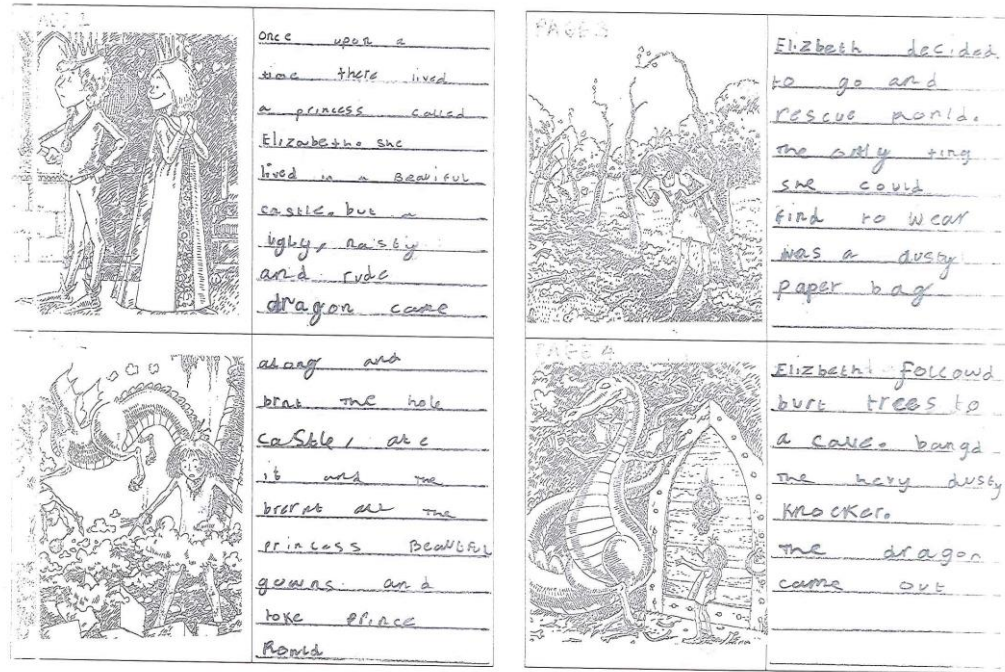 PAGE 1
once upon a
time there lived
a princess called
Elizabeth. she
lived in a Beautiful
castle. but a
ugly, nasty
and rude
dragon came
along and
brnt the hole
castle, ate
it and the
brernt all the
princess BeautiFul
gowns and
toke prince
Ronld
PAGE 3
Elizbeth decided
to go and
rescue ronld.
The only ting
she could
find to wear
was a dusty
paper bag
PAGE 4
Elizbeth followd
burt trees to
a cave. bangd
The hevy dusty
Knocker.
The dragon
came out